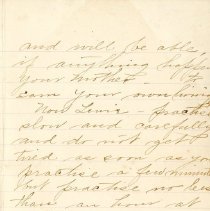 and will be able,
if anything happen
your mother to
earn your own living
Now Lewis - practise
slow and carefully
and do not get
tired as soon as you
practise a few minutes
but practise no less
than an hour at